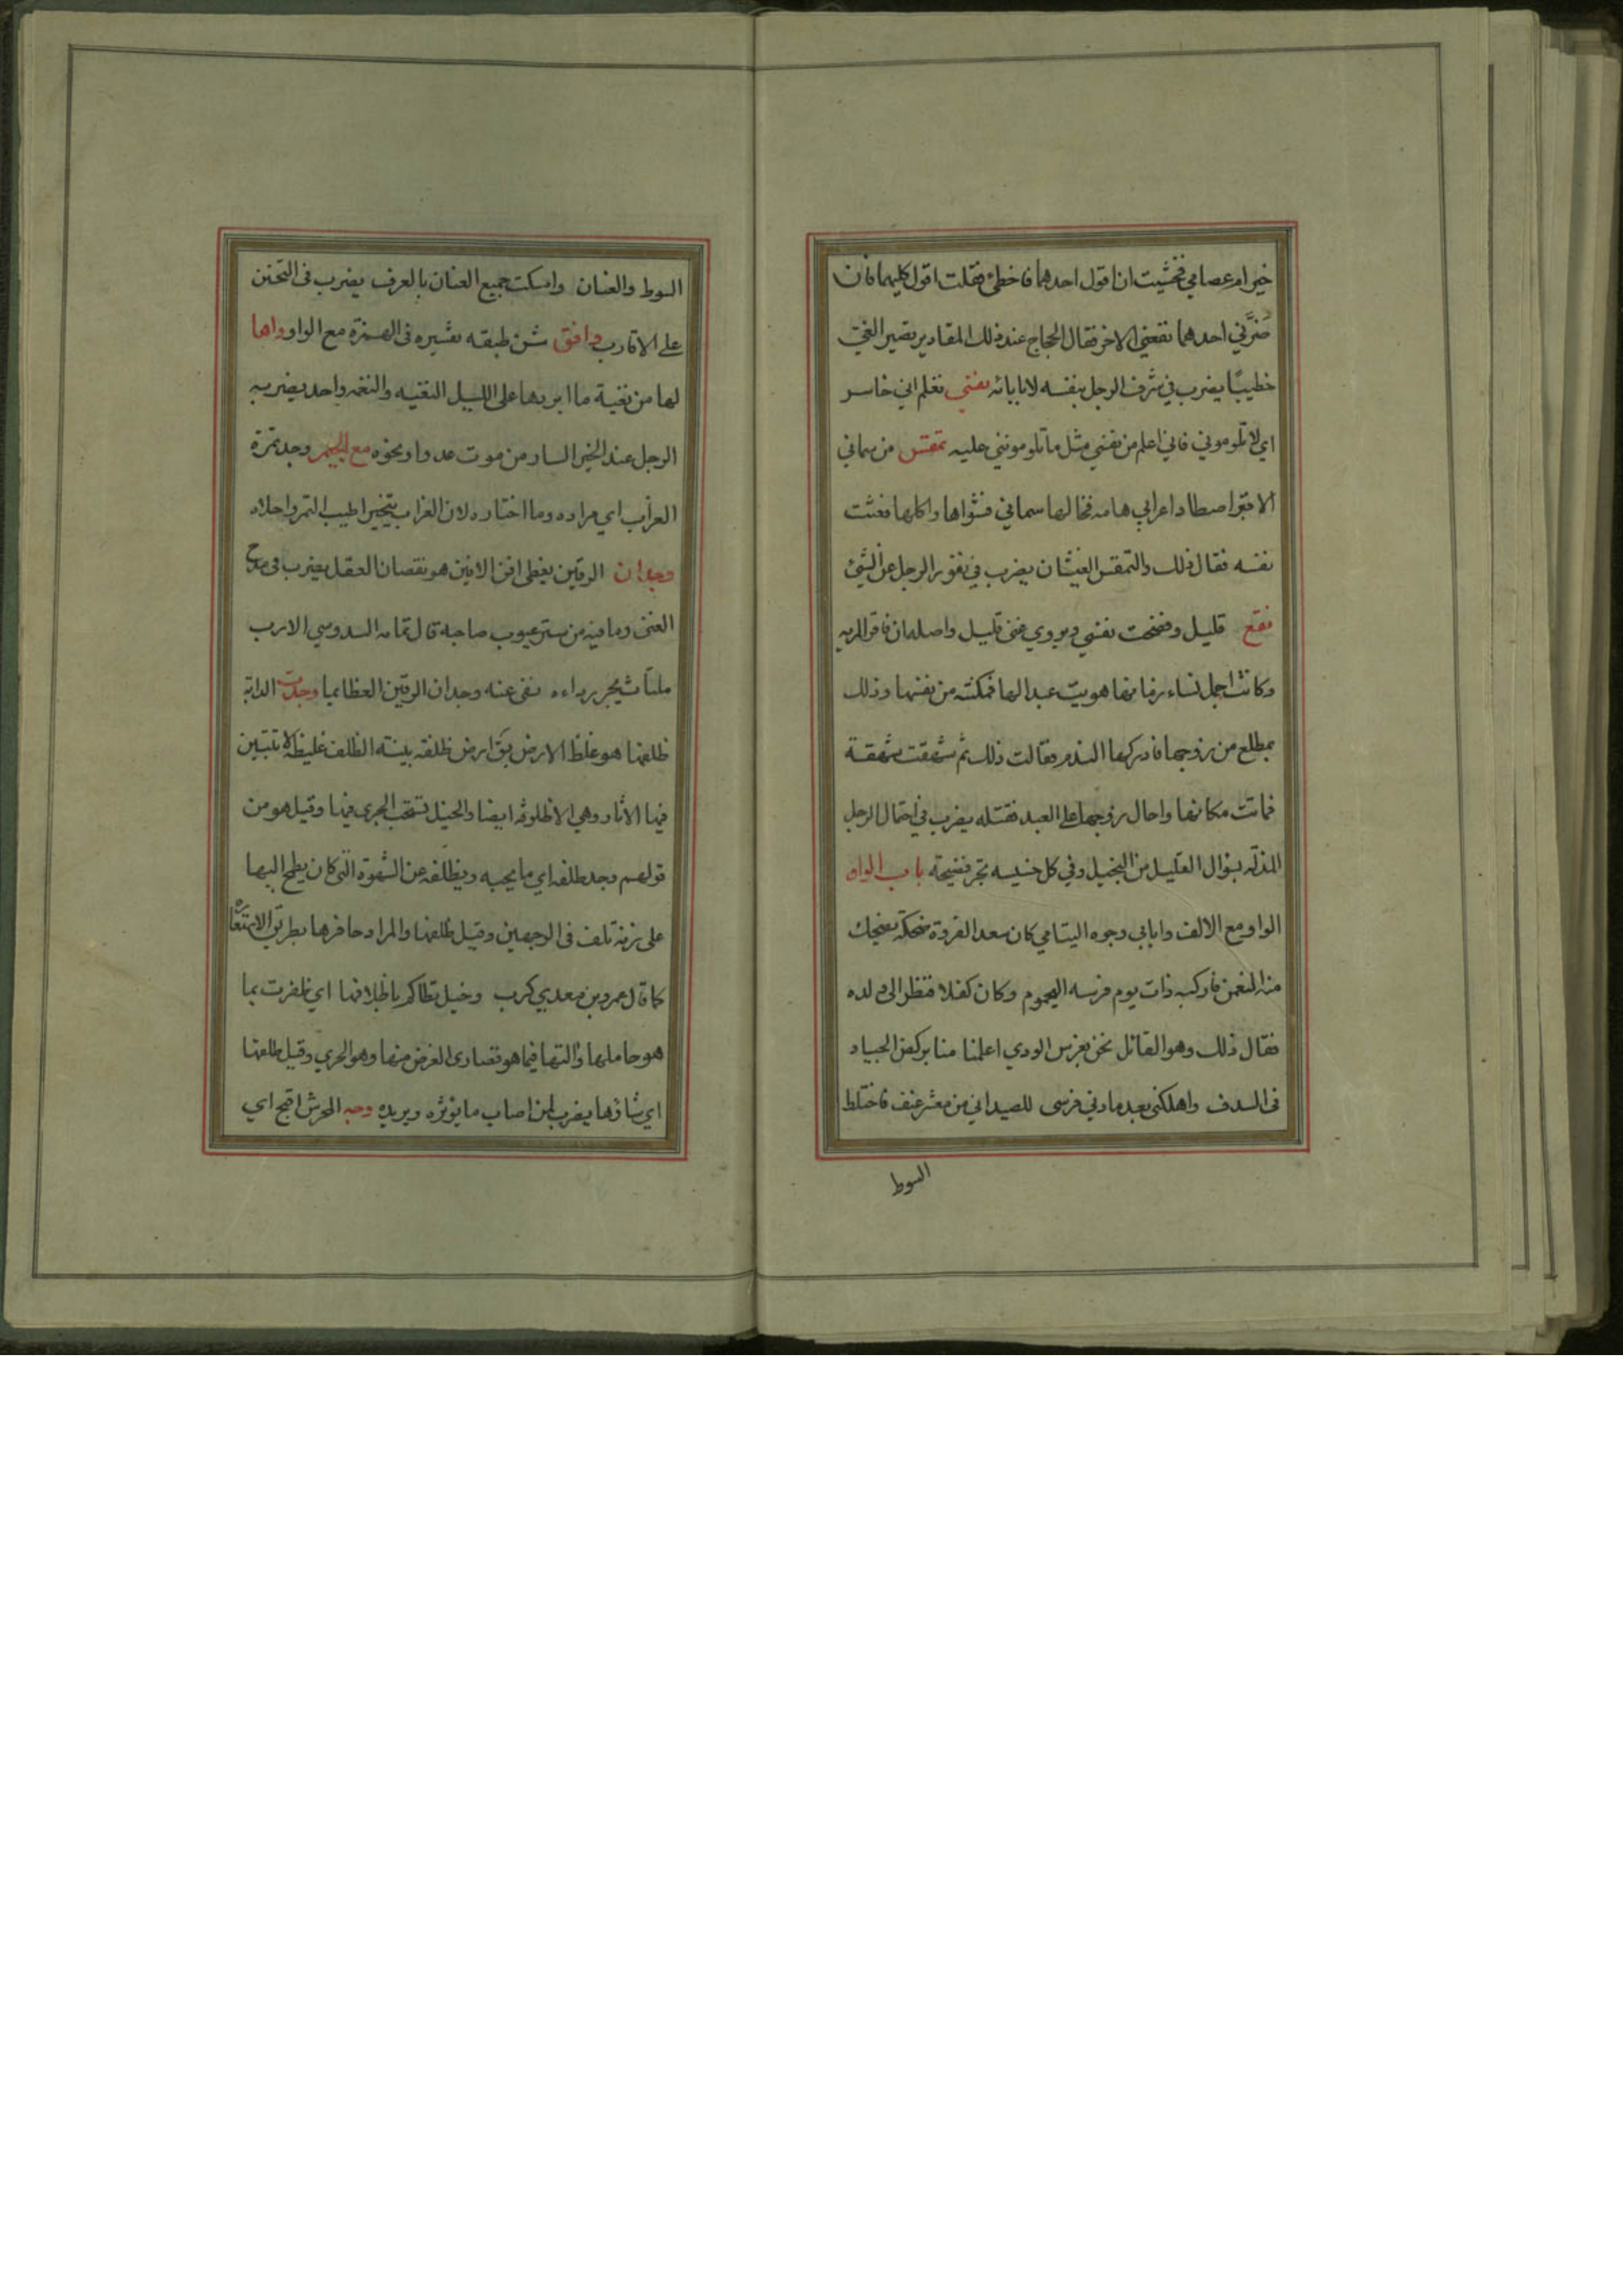 خير ام عصامي فخشيت ان اقول احدهما فاخطئ فقلت اقول كليهما فان
ضرّني احدهما نفعني الاخر فقال الحجاج عند ذلك المقادير تصير الغيّ
خطيبًا يضرب في شرف الرجل بنفسه لا بابائه نفسي تعلم اني خاسر
اي لا تلوموني فاني اعلم من نفسي مثل ما تلومونني عليه تمقس من سماني
الاقبر اصطاد اعرابي هامه فخالها سماني فشواها واكلها فغثت
نفسه فقال ذلك والتمقس الغيثان يضرب في نفور الرجل عن الشئ
نفع قليل وفضحت نفسي ويروي غنى قليل واصله ان فاقرالمريه
وكانت اجمل نساء زمانها هويت عبدا لها فمكنته من نفسها وذلك
بمطلع من زوجها فادركها الندم فقالت ذلك ثم شهقت شهقة
فماتت مكانها واحال زوجها على العبد فقتله يضرب في احتمال الرجل
المذله بنوال القليل من البخيل وفي كل خسيسه تجر فضيحته باب الواو
الواو مع الالف وابابي وجوه اليتامي كان سعد القرقرة ضحكة يضحك
منه النعمن فاركبه ذات يوم فرسه اليحموم وكان كفلا فنظر الى ولده
فقال ذلك وهو القائل نحن بغرس الودي اعلمنا منا بركض الجياد
فى السدف واهلكنى بعد مادنى فرسى للصيد اني من معشر عنف فاختلط
السوط
السوط والعنان وامسكت جميع العنان بالعرف يضرب فى التحنن
على الاقارب وافق شن طبقه تفسيره فى الهمزة مع الواو واها
لها من نغية ما ابردها على الليل النغيه والنغمه واحد يضربه
الرجل عند الخبر السار من موت عدو او نحوه مع الجيم وجد تمرة
الغراب اي مراده وما اختاره لان الغراب يتخير اطيب التمر واحلاه
وجدان الرقين يغطى افن الافين هو نقصان العقل يضرب فى مدح
الغنى وما فيه من ستر عيوب صاحبه قال ثمامه السدوسي الا رب
ملتاث يجر رداءه نفى عنه وجدان الرقين العظايما وجدت الدابة
ظلفها هو غلظ الارض يق ارض ظلفه بينة الظلف غليظه لا تتبين
فيها الاثار وهي الاظلوفه ايضا والخيل تستحب الجرى فيها وقيل هو من
قولهم وجد ظلفه اي ما يحبه ويظلفه عن الشهوة التى كان يطمح اليها
على زنة تلف فى الوجهين وقيل ظلفها والمراد حافرها بطريق الاستعاره
كما قال عمرو بن معدي كرب وخيل تطاكم باظلافها اي ظفرت بما
هو حاملها والتها فيما هو قصارى الغرض منها وهو الجري وقيل ظلفها
اي شاؤها يضرب لمن اصاب ما يؤثره ويريده وجه المحرش اقبح اي